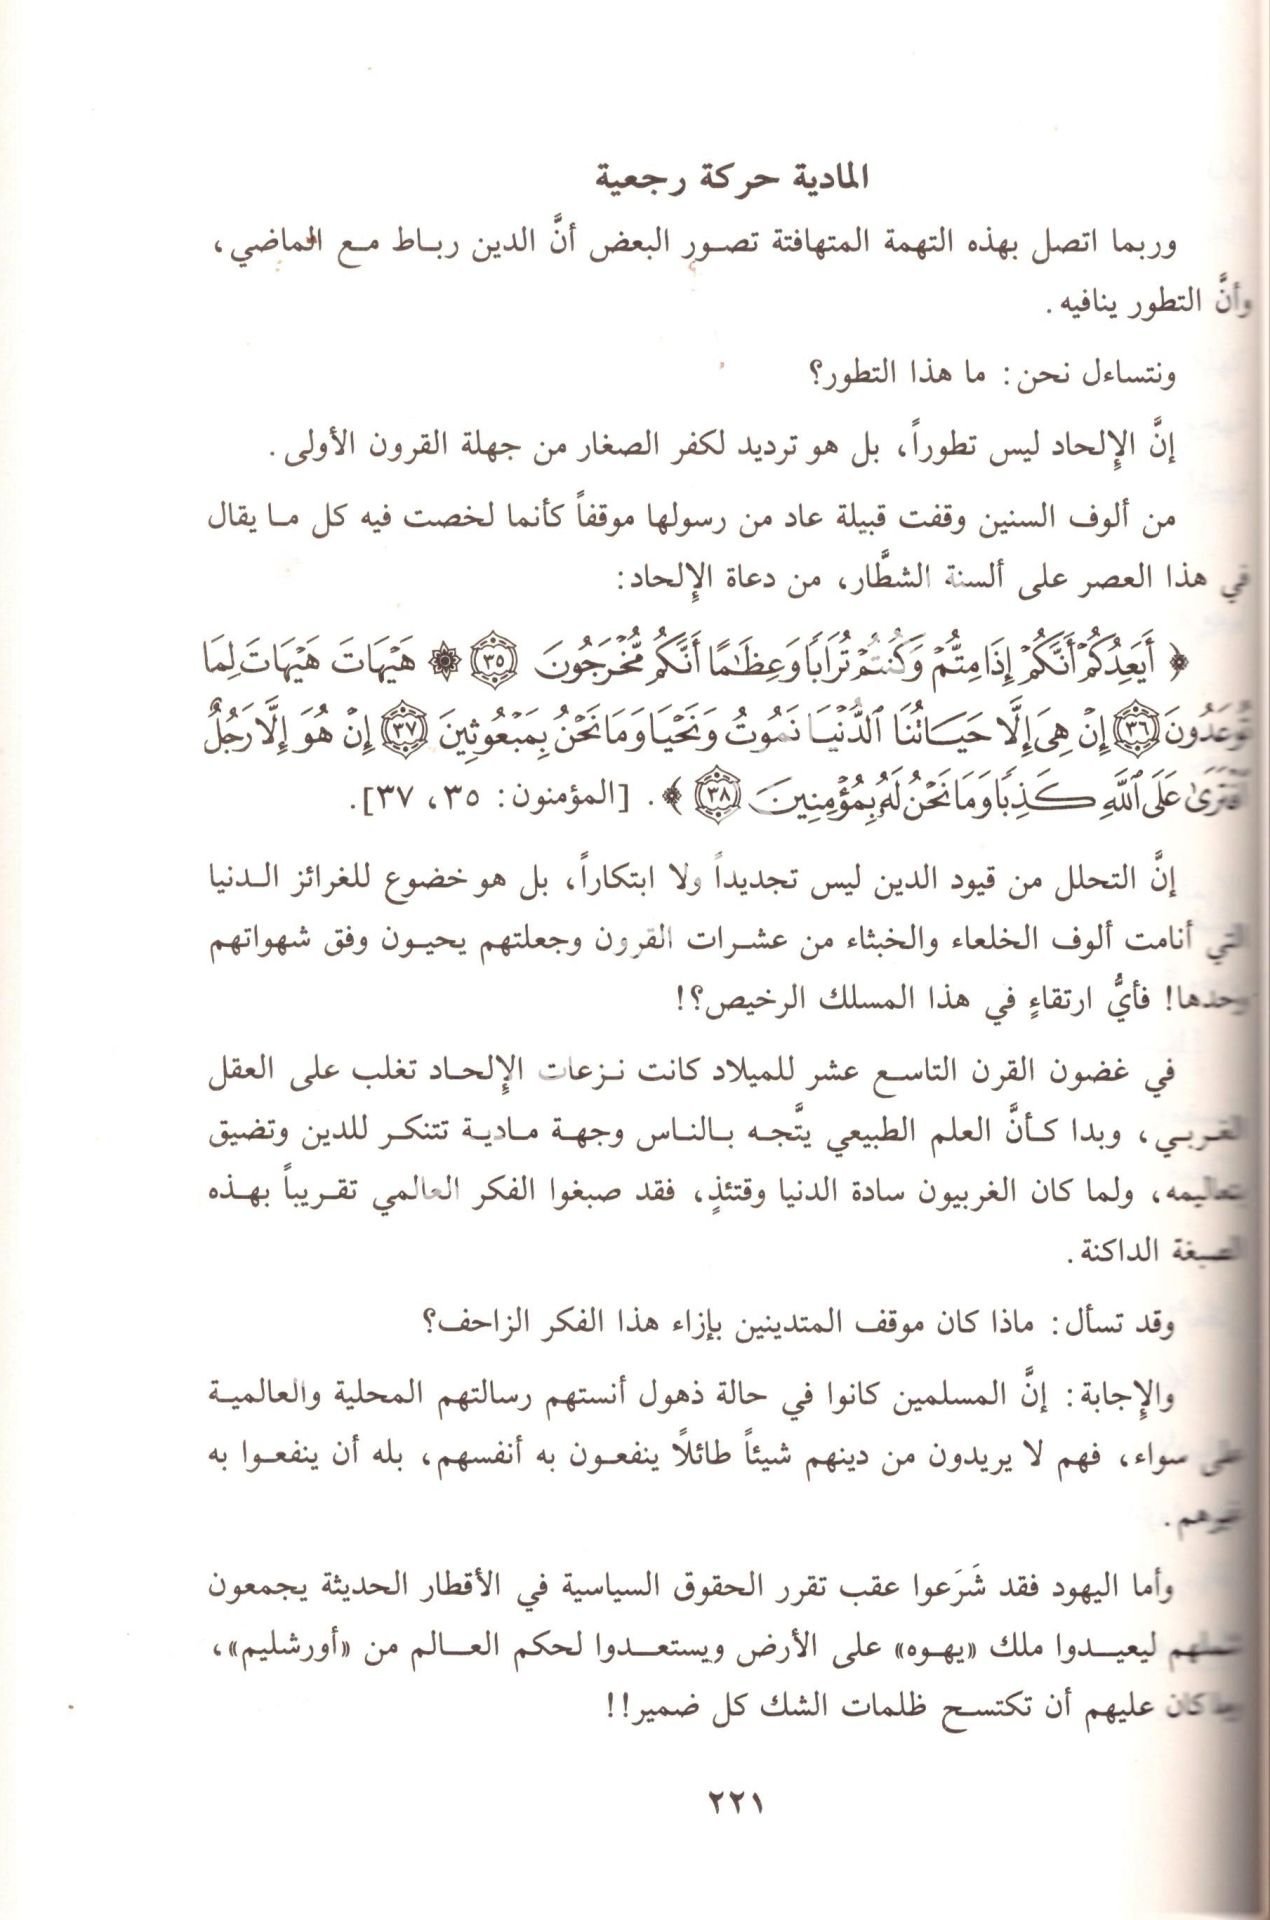 المادية حركة رجعية
وربما اتصل بهذه التهمة المتهافتة تصور البعض أنَّ الدين رباط مع الماضي،
وأنَّ التطور ينافيه.
ونتساءل نحن: ما هذا التطور؟
إنَّ الإلحاد ليس تطوراً، بل هو ترديد لكفر الصغار من جهلة القرون الأولى.
من ألوف السنين وقفت قبيلة عاد من رسولها موقفاً كأنما لخصت فيه كل ما يقال
في هذا العصر على ألسنة الشطَّار، من دعاة الإلحاد:
﴿ أَيَعِدُكُمْ أَنَّكُمْ إِذَا مِتُّمْ وَكُنتُمْ تُرَابًا وَعِظَامًا أَنَّكُم مُّخْرَجُونَ ٣٥ ۞ هَيْهَاتَ هَيْهَاتَ لِمَا
تُوعَدُونَ ٣٦ إِنْ هِىَ إِلَّا حَيَاتُنَا ٱلدُّنْيَا نَمُوتُ وَنَحْيَا وَمَا نَحْنُ بِمَبْعُوثِينَ ٣٧ إِنْ هُوَ إِلَّا رَجُلٌ
ٱفْتَرَىٰ عَلَى ٱللَّهِ كَذِبًا وَمَا نَحْنُ لَهُۥ بِمُؤْمِنِينَ ٣٨ ﴾. [المؤمنون: ٣٥، ٣٧].
إنَّ التحلل من قيود الدين ليس تجديداً ولا ابتكاراً، بل هو خضوع للغرائز الدنيا
التي أنامت ألوف الخلعاء والخبثاء من عشرات القرون وجعلتهم يحيون وفق شهواتهم
وحدها! فأيُّ ارتقاءٍ في هذا المسلك الرخيص؟!
في غضون القرن التاسع عشر للميلاد كانت نزعات الإلحاد تغلب على العقل
الغربي، وبدا كأنَّ العلم الطبيعي يتَّجه بالناس وجهة مادية تتنكر للدين وتضيق
بتعاليمه، ولما كان الغربيون سادة الدنيا وقتئذٍ، فقد صبغوا الفكر العالمي تقريباً بهذه
الصبغة الداكنة.
وقد تسأل: ماذا كان موقف المتدينين بإزاء هذا الفكر الزاحف؟
والإجابة: إنَّ المسلمين كانوا في حالة ذهول أنستهم رسالتهم المحلية والعالمية
على سواء، فهم لا يريدون من دينهم شيئاً طائلًا ينفعون به أنفسهم، بله أن ينفعوا به
غيرهم.
وأما اليهود فقد شَرَعوا عقب تقرر الحقوق السياسية في الأقطار الحديثة يجمعون
شملهم ليعيدوا ملك «يهوه» على الأرض ويستعدوا لحكم العالم من «أورشليم»،
وما كان عليهم أن تكتسح ظلمات الشك كل ضمير!!
٢٢١